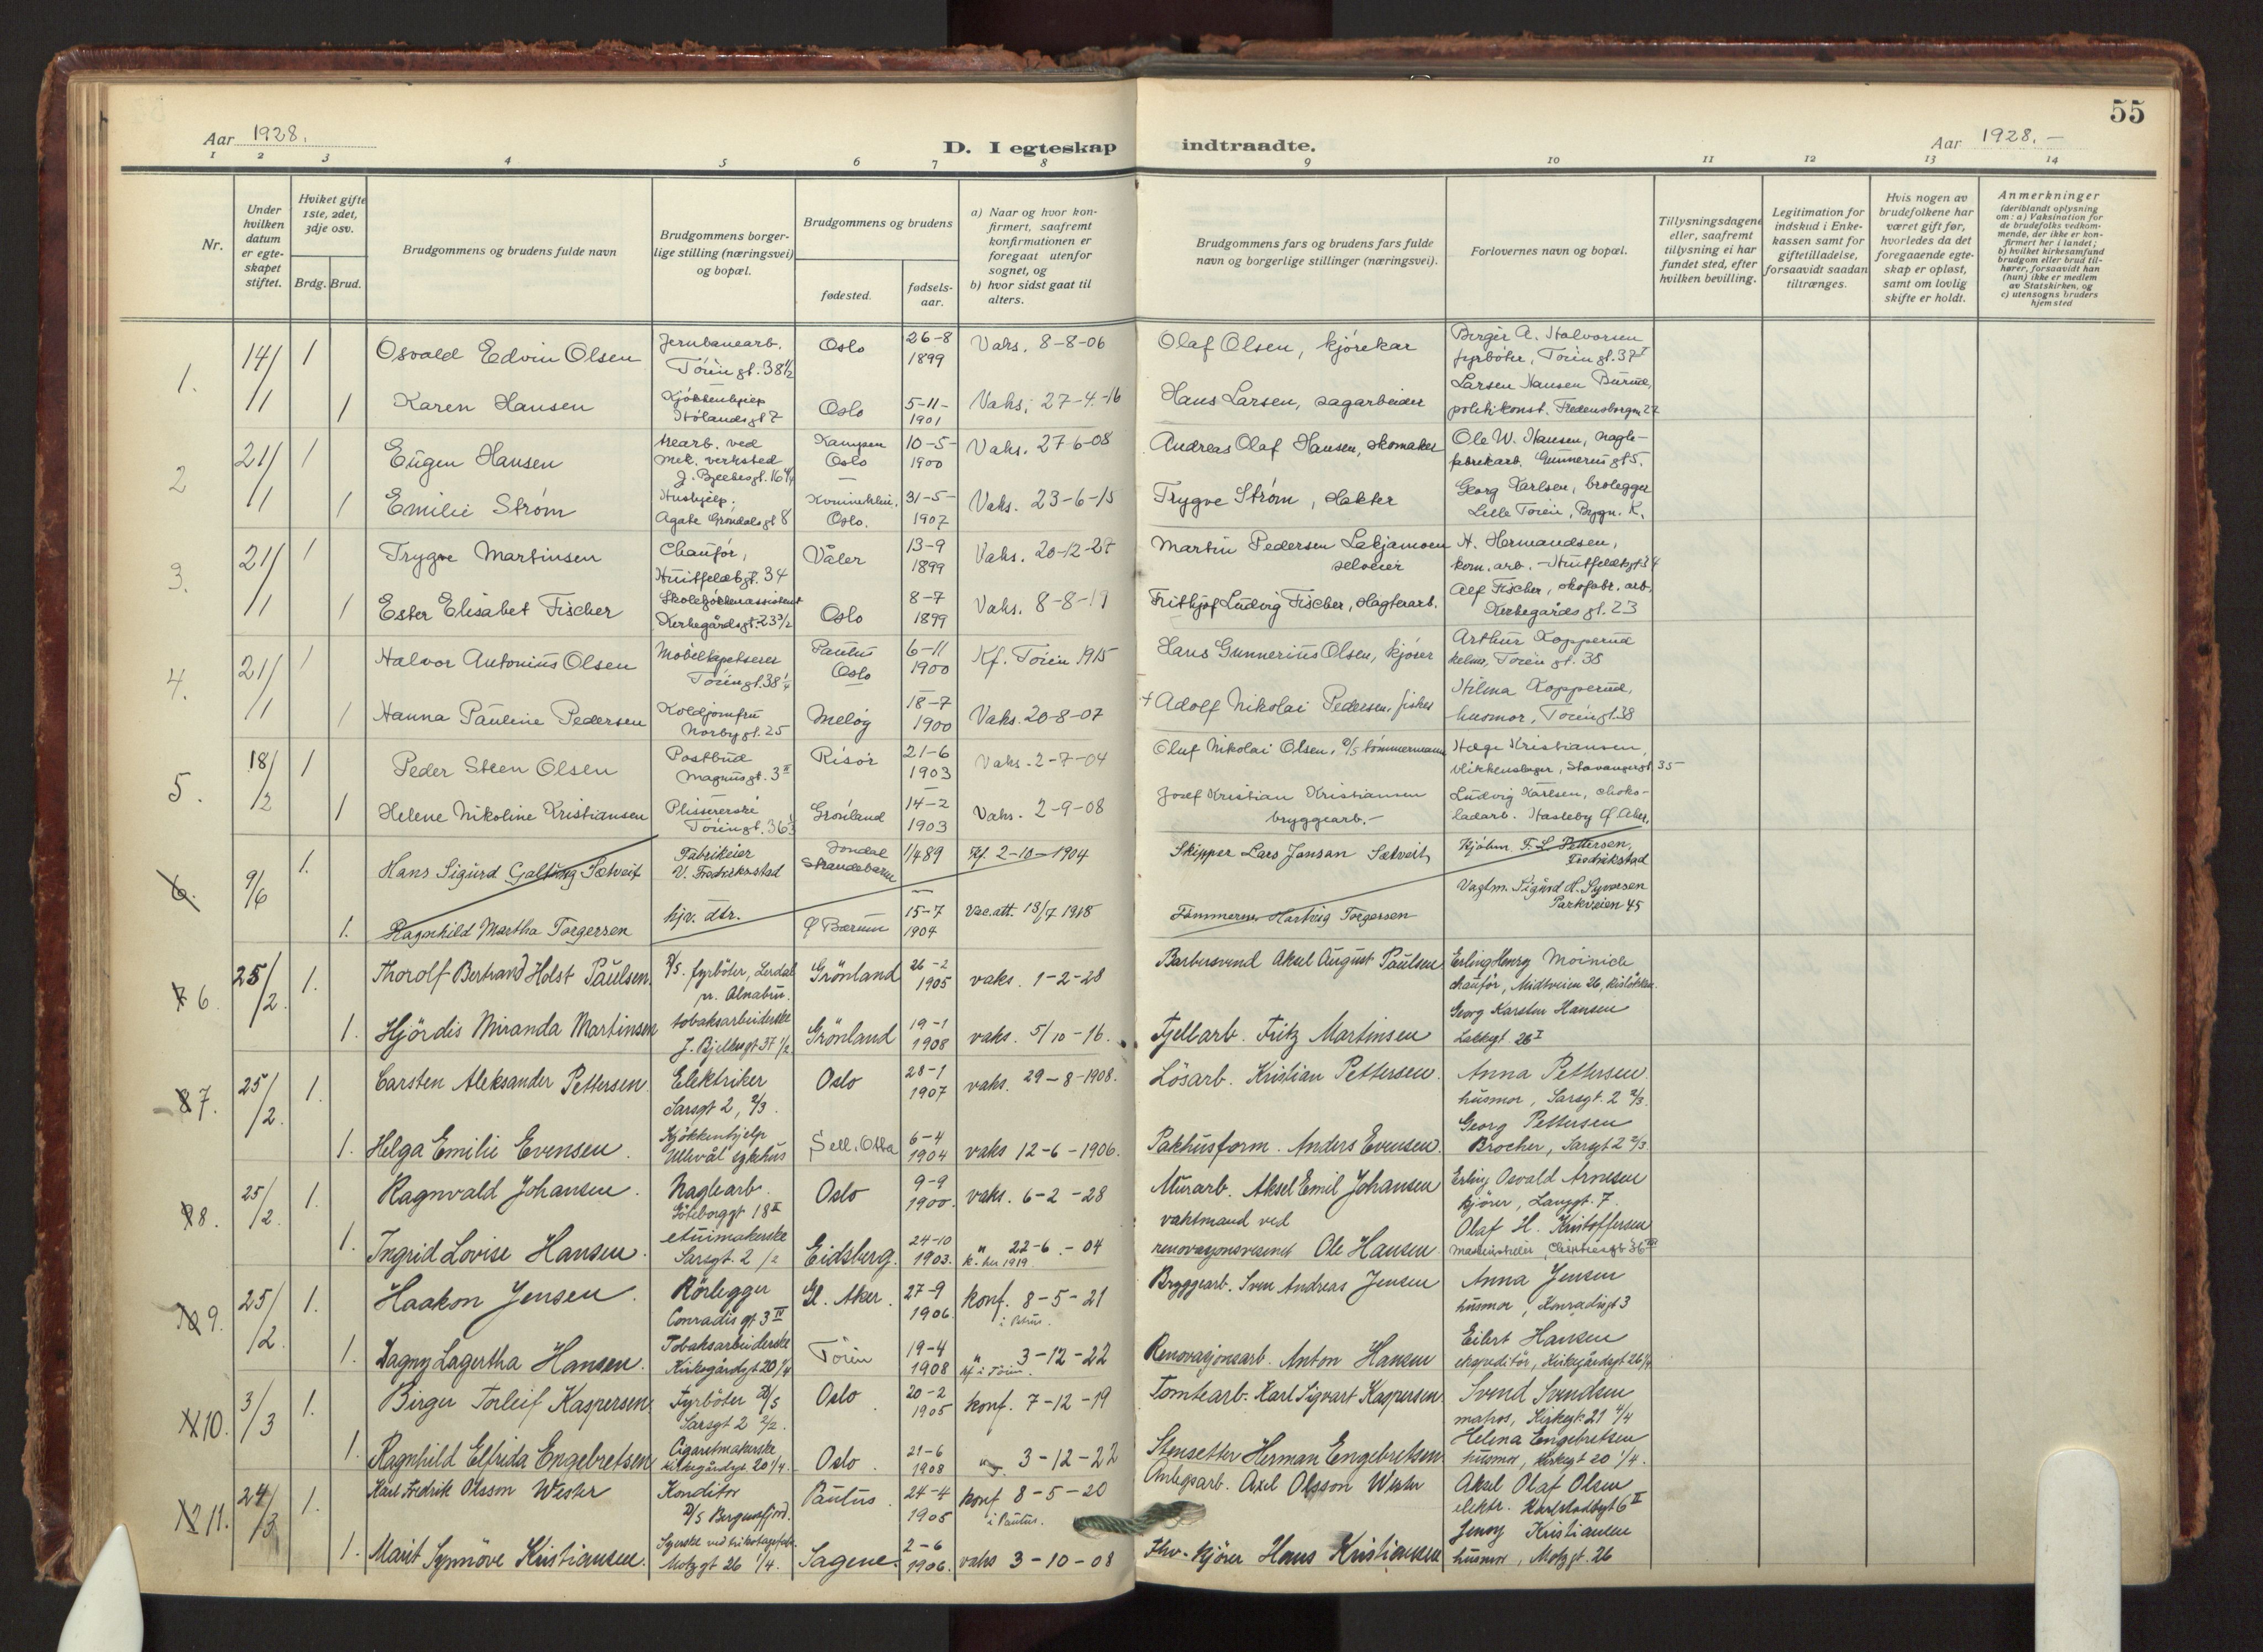 55
Aar 1928.
D. I egteskap indtraadte.
Aar 1928. —
1 2 3 4 5 6 7 8 9 10 11 12 13 14
Nr.
Under hvilken datum er egte- skapet stiftet.
Hviket gifte 1ste, 2det, 3dje osv.
Brdg. Brud.
Brudgommens og brudens fulde navn
Brudgommens borger- lige stilling (næringsvei) og bopæl.
Brudgommens og brudens
fødested.
fødsels- aar.
a) Naar og hvor kon- firmert, saafremt konfirmationen er foregaat utenfor sognet, og
b) hvor sidst gaat til alters.
Brudgommens fars og brudens fars fulde navn og borgerlige stillinger (næringsvei).
Forlovernes navn og bopæl.
Tillysningsdagene eller, saafremt tillysning ei har fundet sted, efter hvilken bevilling.
Legitimation for indskud i Enke- kassen samt for giftetilladelse, forsaavidt saadan tiltrænges.
Hvis nogen av brudefolkene har været gift før, hvorledes da det foregaaende egte- skap er opløst, samt om lovlig skifte er holdt.
Anmerkninger (deriblandt oplysning om: a) Vaksination for de brudefolks vedkom- mende, der ikke er kon- firmert her i landet; b) hvilket kirkesamfund brudgom eller brud til- hører, forsaavidt han (hun) ikke er medlem av Statskirken, og c) utensogns bruders hjemsted
1. 14/1 1 Osvald Edvin Olsen Jernbanearb. Töien gt. 38 1/2 Oslo 26-8 1899 Vaks. 8-8-06 Olaf Olsen, kjörekar Birger A. Halvorsen fyrböter, Töien gt. 37 I
1 Karen Hansen Kjökkenhjelp Hölandsgt 7 Oslo 5-11- 1901 Vaks; 27-4.-16 Hans Larsen, sagarbeider Larsen Hansen politikonst. Fredensborgvn 22
2 21/1 1 Eugen Hansen mek. verksted Kampen Oslo 10-5- 1900 Vaks. 27-6-08 Andreas Olaf Hansen, skomaker Ole W. Hansen, nagle- fabrikarb. Gunnerus gt 5.
1 Emilie Ström Hushjelp. Agate Gröndals gt 8 Oslo. 31-5- 1907 Vaks. 23-6-15 Trygve Ström, slakter Georg Karlsen, brolegger Lille Töien, Bygn. K.
3. 21/1 1 Trygve Martinsen Chauför, Huitfeldtsgt. 34 Våler 13-9 1899 Vaks. 20-12-27 Martin Pedersen selveier H. Hermandsen, kom. arb. - Huitfeldtsgt 34
1 Ester Elisabet Fischer Skolekjökkenassistent Kirkegårdsgt. 23 3/2 Oslo 8-7 1899 Vaks. 8-8-19 Frithjof Ludvig Fischer, slagterarb. Alf Fischer, skofabr. arb, Kirkegårds gt. 23
4. 21/1 1 Halvor Antonius Olsen Möbeltapetserer Töiengt. 38 1/4 Paulus Oslo 6-11 1900 Kf. Töien 1915 Hans Gunnerius Olsen, kjörer Arthur Kopperud kelner, Töien gt. 38
1 Hanna Pauline Pedersen Koldjomfru Norbygt. 25 Melöy 18-7 1900 Vaks. 20-8-07 + Adolf Nikolai Pedersen, fisker Hilma Kopperud, husmor, Töiengt. 38
5. 18/2 1 Peder Steen Olsen Postbud Magnusgt. 3 II Risör 21-6 1903 Vaks. 2-7-04 Oluf Nikolai Olsen, D/S tömmermann Helge Kristiansen, blikkenslager, Stavangergt. 35
1 Helene Nikoline Kristiansen Plissererske Töiengt. 36 Grönland 14-2 1903 Vaks. 2-9-08 Josef Kristian Kristiansen bryggearb. - Ludvig Karlsen, choko- ladarb. Hasleby Ö. Aker.
6. 9/6 1. Hans Sigurd Galtung Sætveit Fabrikeier V. Fredrikstad Jondal Strandebarm 1/4 89 Kf. 2-10-1904 Skipper Lars Jansan Sætveit Kjöbm. F. L. Pettersen, Fredrikstad
1. Ragnhild Martha Torgersen hjv. dtr. Ö Bærum 15-7 1904 Vac. att. 13/7 1915 Tömmerm. Hartvig Torgersen Vagtm. Sigurd H. Syversen Parkveien 45
7 6. 25/2. 1. Thorolf Bertrand Holst Paulsen D/S. fyrböter, Lerdal pr. Alnabru. Grönland 26-2 1905 vaks. 1-2-28 Barbersvend Aksel August Paulsen Erling Henry Moinich chauför, Midtveien 26, Kislökken.
1. Hjördis Miranda Martinsen tobaksarbeiderske J. Bjelkesgt 37 1/2 Grönland 19-1 1908 vaks. 5/10-16. Fjellarb. Fritz Martinsen Georg Karsten Hansen Lakkgt 26 I
8 7. 25/2. 1. Carsten Aleksander Pettersen Elektriker Sarsgt 2, 2/3. Oslo 28-1 1907 vaks. 29-8-1908. Lösarb. Kristian Pettersen. Anna Pettersen husmor, Sarsgt. 2 2/3.
1. Helga Emilie Evensen. Kjökkenhjelp Ullevål sykehus Sell. Otta 6-4 1904 vaks 12-6-1906. Pakhusform. Anders Evensen. Georg Pettersen Brocher, Sarsgt 2 2/3.
9 8. 25/2. 1. Ragnvald Johansen. Naglearb. Göteborggt 18 II Oslo 9-9 1900. vaks. 6-2-28 Murarb. Aksel Emil Johansen Erling Osvald Arnesen kjörer, Langgt. 7
1. Ingrid Lovise Hansen. etuimakerske Sarsgt. 2 1/2 Eidsberg. 24-10 1903. " 22-6.-04 k. her 1919. vaktmand ved renovasjonsvesenet Ole Hansen Olaf H. Kristoffersen
10 9. 25/2. 1. Haakon Jensen. Rörlegger Conradis gt 3 IV Gl. Aker. 27-9 1906. konf. 8-5-21 Bryggearb. Sven Andreas Jensen Anna Jensen husmor, Konradisgt 3
1. Dagny Lagertha Hansen. Tobaksarbeiderske Kirkegårdsgt. 20 1/4 Töien 19-4 1908 " 3-12-22 kf. i Töien. Renovasjonsarb. Anton Hansen Eilert Hansen ekspeditör, Kirkegårdsgt 26 1/4
11 10. 3/3 1. Birger Torleif Kaspersen. Fyrböter D/S Sarsgt 2 2/2. Oslo 20-2 1905 konf. 7-12-19 Tomtearb. Karl Sigvart Kaspersen. Svend Svendsen matros, Kirkegt. 21 4/4
1. Ragnhild Elfrida Engebretsen Cigaretmakerske kirkegårdsgt. 20 1/4. Oslo. 21-6 1908 " 3-12-22 Stensetter Herman Engebretsen Helena Engebretsen husmor, Kirkegt 20 1/4.
12 11. 24/3 1. Karl Fredrik Olsson Wester Konditor D/S Bergensfjord. Paulus. 24-4 1905 konf 8-5-20 i Paulus. Anlegsarb. Axel Olsson Wester Aksel Olaf Olsen elektr. Karlstadtsgt 6 II
1. Marit Synnöve Kristiansen. Syerske ved trikotagefabr. Motzgt 26 1/4. Sagene. 2-6 1906. vaks 3-10-08 Fhv. kjörer Hans Kristiansen Jenny Kristiansen husmor, Motzgt. 26